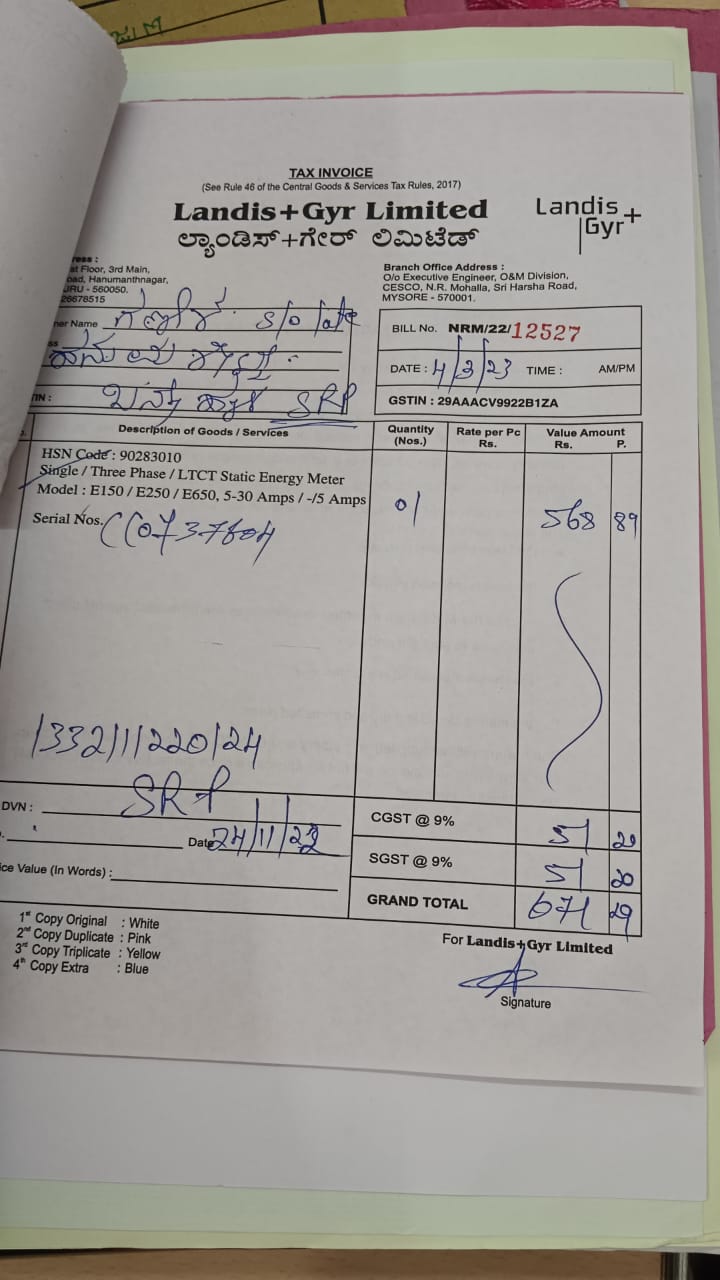 TAX INVOICE
(See Rule 46 of the Central Goods & Services Tax Rules, 2017)
Landis+Gyr Limited
ಲ್ಯಾಂಡಿಸ್+ಗೇರ್ ಲಿಮಿಟೆಡ್
Landis+
Gyr
ress :
st Floor, 3rd Main,
oad, Hanumanthnagar,
URU - 560050.
26678515
Branch Office Address :
O/o Executive Engineer, O&M Division,
CESCO, N.R. Mohalla, Sri Harsha Road,
MYSORE - 570001.
er Name S/o late
ss
TIN : SRP
BILL No. NRM/22/12527
DATE : 4/3/23 TIME : AM/PM
GSTIN : 29AAACV9922B1ZA
Description of Goods / Services Quantity (Nos.) Rate per Pc Rs. Value Amount Rs. P.
HSN Code : 90283010
Single / Three Phase / LTCT Static Energy Meter
Model : E150 / E250 / E650, 5-30 Amps / -/5 Amps 01 568 89
Serial Nos. CC0737604
1332/1/220/24
DVN : SRP
Date 24/11/22
ce Value (In Words) :
CGST @ 9% 51 20
SGST @ 9% 51 20
GRAND TOTAL 671 29
1st Copy Original : White
2nd Copy Duplicate : Pink
3rd Copy Triplicate : Yellow
4th Copy Extra : Blue
For Landis+Gyr Limited
Signature